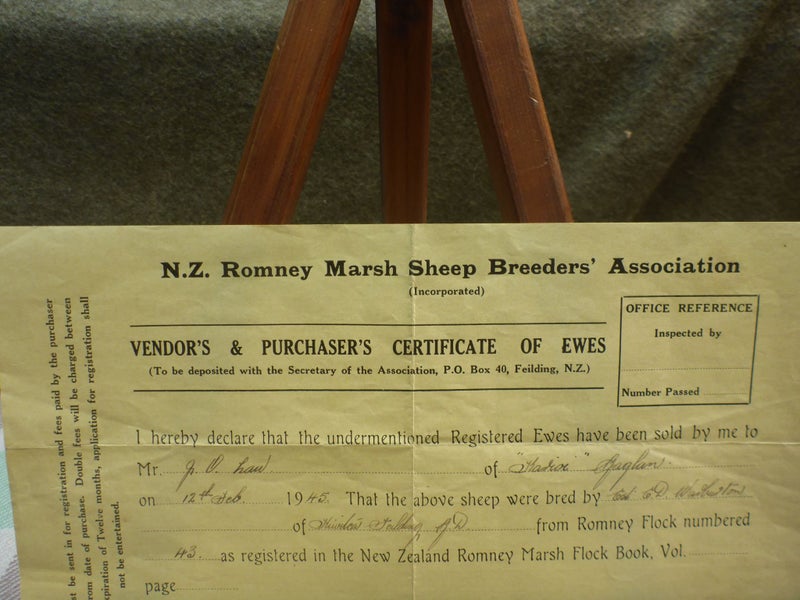 N.Z. Romney Marsh Sheep Breeders' Association
(Incorporated)
VENDOR'S & PURCHASER'S CERTIFICATE OF EWES
(To be deposited with the Secretary of the Association, P.O. Box 40, Feilding, N.Z.)
OFFICE REFERENCE
Inspected by
Number Passed
I hereby declare that the undermentioned Registered Ewes have been sold by me to
Mr. J. O. Law of Raglan
on 12th Feb. 1945. That the above sheep were bred by
of R.D. from Romney Flock numbered
43. as registered in the New Zealand Romney Marsh Flock Book, Vol.
page
st be sent in for registration and fees paid by the purchaser
rom date of purchase. Double fees will be charged between
xpiration of Twelve months, application for registration shall
not be entertained.